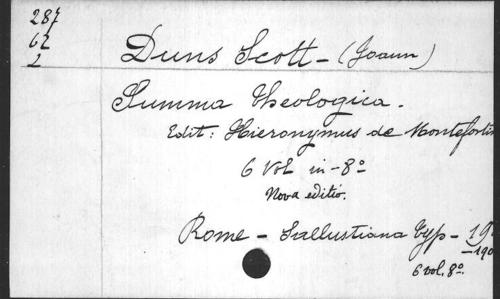 287
62
2
Duns Scott - (Joann)
Summa theologica.
Edit: Hieronymus de Montefortin
6 Vol in-8°
Nova editio.
Rome - Sallustiana typ - 19
-190
6 vol. 8°.